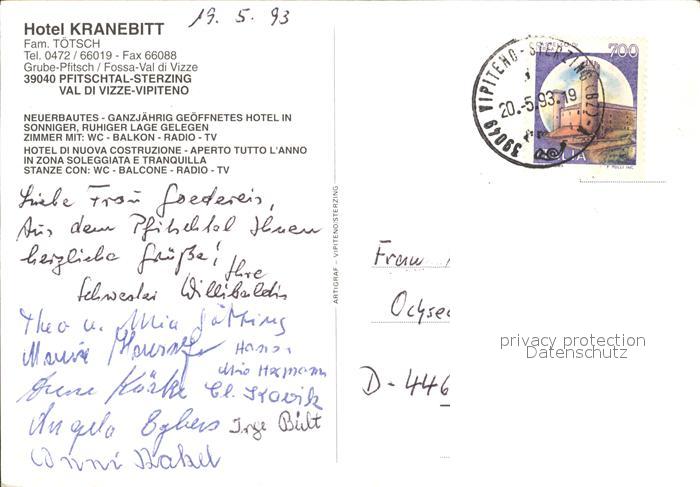 19. 5. 93
Hotel KRANEBITT
Fam. TÖTSCH
Tel. 0472 / 66019 - Fax 66088
Grube-Pfitsch / Fossa-Val di Vizze
39040 PFITSCHTAL-STERZING
VAL DI VIZZE-VIPITENO
NEUERBAUTES - GANZJÄHRIG GEÖFFNETES HOTEL IN
SONNIGER, RUHIGER LAGE GELEGEN
ZIMMER MIT: WC - BALKON - RADIO - TV
HOTEL DI NUOVA COSTRUZIONE - APERTO TUTTO L'ANNO
IN ZONA SOLEGGIATA E TRANQUILLA
STANZE CON: WC - BALCONE - RADIO - TV
Liebe Frau Goedereis,
Aus dem Pfitschtal Ihnen
herzliche Grüße!
Ihre
Schwester Willibaldis
Theo u. Mia
Maria
Hanna
Anne
Cl.
Angela Egbers Inge Bült
Anni
ARTIGRAF - VIPITENO/STERZING
700
39049 VIPITENO - STERZING (BZ) - A
20.-5.93.19
Frau
Ochse
D-446
privacy protection
Datenschutz